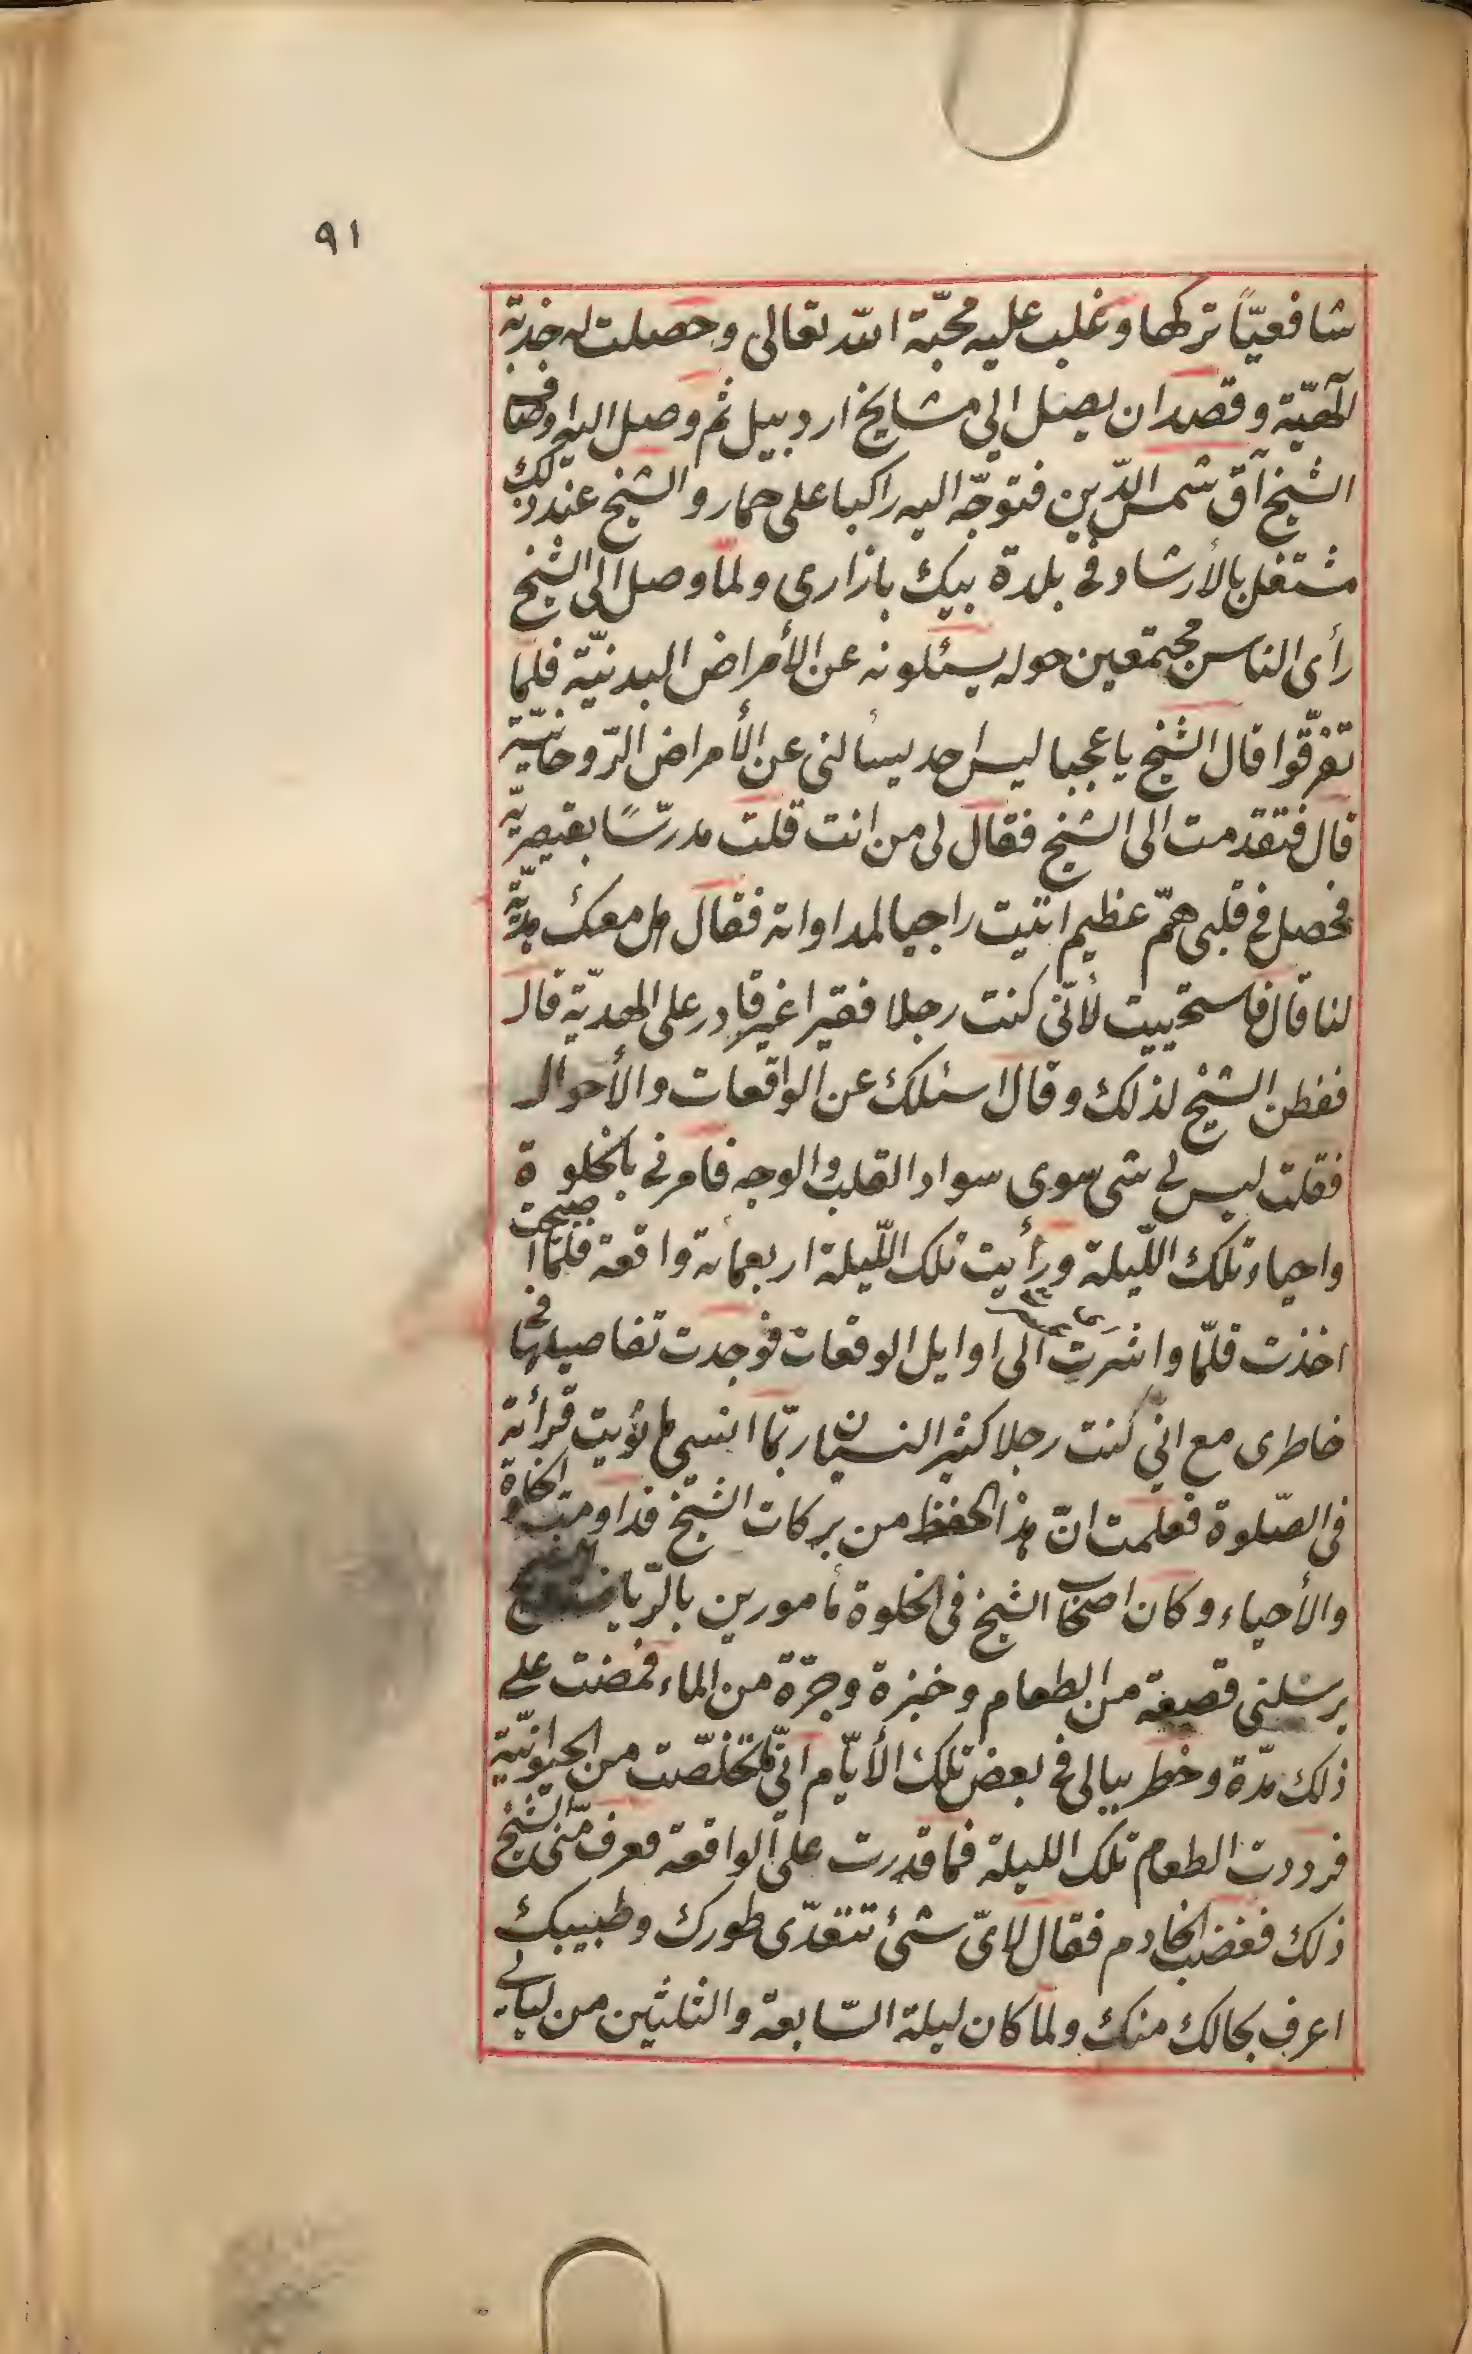 ٩١
شافعيّاً تركها وغلب عليه محبّة اللّه تعالى وحصلت له جذبة
آلهيّة وقصد ان يصل الى مشايخ اردبيل ثم وصل اليه اوصاف
الشيخ آق شمس الدّين فتوجّه اليه راكبا على حمار والشيخ عند ذلك
مشتغل بالأرشاد فى بلدة بيك بازارى ولمّا وصل الى الشيخ
رأى الناس مجتمعين حوله يسئلونه عن الأمراض البدنيّة فلمّا
تفرّقوا قال الشيخ يا عجبا ليس احد يسألنى عن الأمراض الرّوحانيّة
قال فتقدمت الى الشيخ فقال لى من انت قلت مدرّسًا بقيصريّة
فحصل فى قلبى همّ عظيم اتيت راجيا لمداواته فقال هل معك هديّة
لنا قال فاستحييت لأنّى كنت رجلا فقيرا غير قادر على الهديّة قال
ففطن الشيخ لذلك وقال اسئلك عن الواقعات والأحوال
فقلت ليس لى شى سوى سواد القلب والوجه فامرنى بالخلوة
واحياء تلك اللّيلة ورأيت تلك اللّيلة اربعمائة واقعة فلمّا اصبحت
اخذت قلمّا واشرت الى اوايل الوقعات فوجدت تفاصيلها فى
خاطرى مع انّى كنت رجلا كثير النسيان ربّما انسى ما نويت قرأته
فى الصّلوة فعلمت انّ هذا الحفظ من بركات الشيخ فداومت الخلوة
والأحياء وكان اصحاب الشيخ فى الخلوة مأمورين بالرّياضة
يرسلنى قصيعة من الطعام وخبزة وجرّة من الماء فمضت على
ذلك مدّة وخطر ببالى فى بعض تلك الأيّام انّى تخلّصت من الحيوانيّة
فرددت الطعام تلك الليلة فما قدرت على الواقعة فعرف منّى الشيخ
ذلك فغضب الخادم فقال لاىّ شئ تتعدّى طورك وطبيبك
اعرف بحالك منك ولما كان ليلة السّابعة والثلثين من ليالى